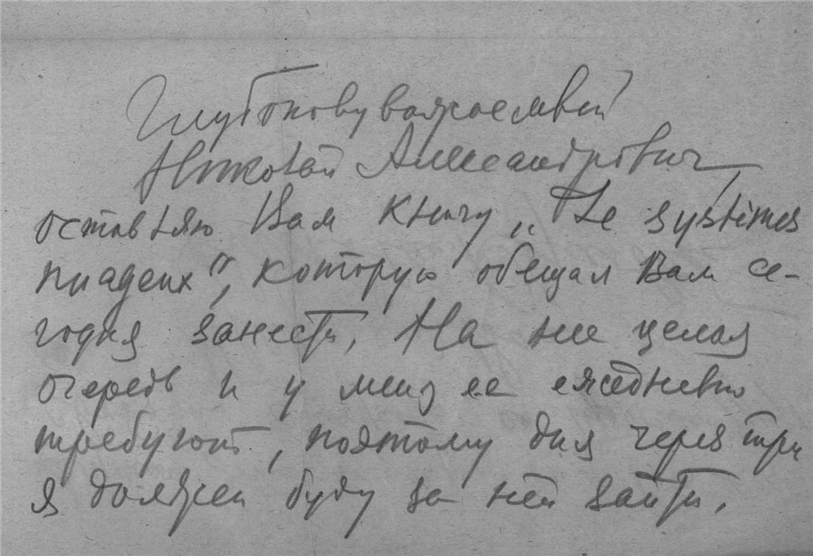 Глубокоуважаемый
Николай Александрович,
оставляю Вам книгу „Le systèmes
nuageux", которую обещал Вам се-
годня занести. На нее целая
очередь и у меня ее ежедневно
требуют, поэтому дня через три
я должен буду за ней зайти.